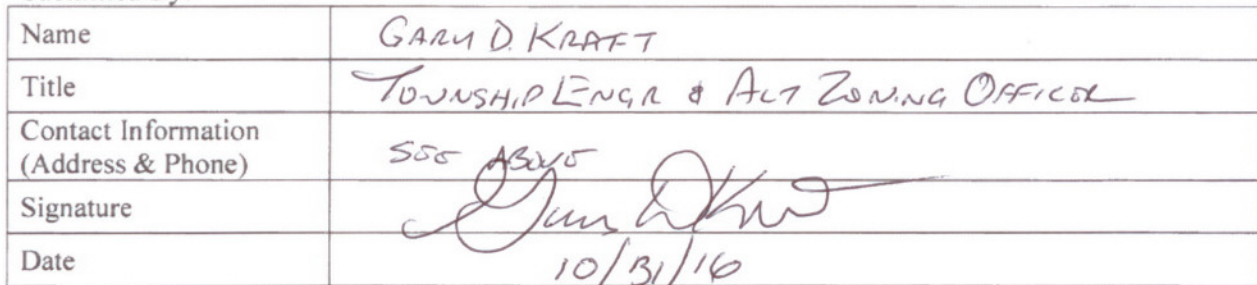 Name GARY D. KRAFT
Title TOWNSHIP ENGR & ALT ZONING OFFICER
Contact Information
(Address & Phone) SEE ABOVE
Signature
Date 10/31/16